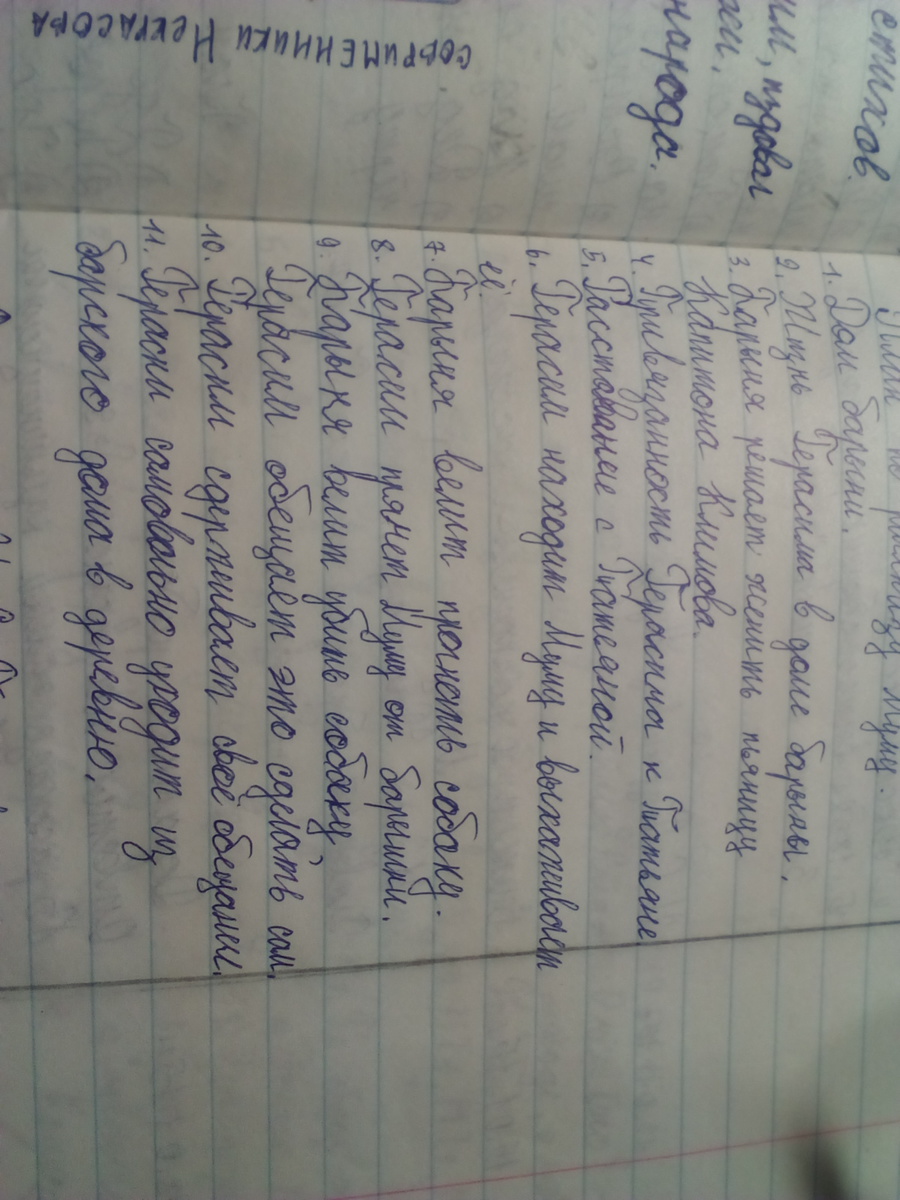 стихов.
им, пудовал
ей.
народа.
современники Некрасова
План по рассказу Муму.
1. Дом барыни.
2. Жизнь Герасима в доме барыны.
3. Барыня решает женить пьяницу
Капитона Климова.
4. Привязанность Герасима к Татьяне.
5. Расставание с Татьяной.
6. Герасим находит Муму и выхаживает
её.
7. Барыня велит прогнать собаку.
8. Герасим прячет Муму от барынни.
9. Барыня велит убить собаку
Герасим обещает это сделать сам.
10. Герасим сдерживает своё обещание.
11. Герасим самовольно уходит из
барского дома в деревню.